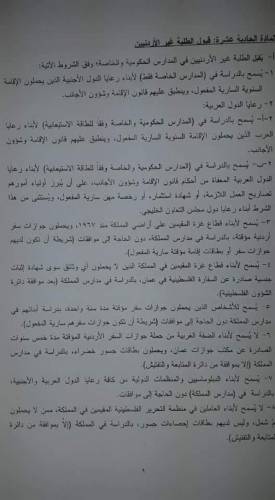 المادة الحادية عشرة: قبول الطلبة غير الأردنيين
أ- يقبل الطلبة غير الأردنيين في المدارس الحكومية والخاصة؛ وفق الشروط الآتية:
١- يُسمح بالدراسة في (المدارس الخاصة فقط) لأبناء رعايا الدول الأجنبية الذين يحملون الإقامة
السنوية السارية المفعول، وينطبق عليهم قانون الإقامة وشؤون الأجانب.
٢- رعايا الدول العربية:
٢-أ- يُسمح بالدراسة في (المدارس الحكومية والخاصة وفقا للطاقة الاستيعابية) لأبناء رعايا
العرب الذين يحملون الإقامة السنوية السارية المفعول، وينطبق عليهم قانون الإقامة وشؤون
الأجانب.
٢-ب- يُسمح بالدراسة في (المدارس الحكومية والخاصة وفقاً للطاقة الاستيعابية) لأبناء رعايا
الدول العربية المعفاة من أحكام قانون الإقامة وشؤون الأجانب، على أن يُبرز أولياء أمورهم
تصاريح العمل اللازمة، أو شهادة استثمار، أو رخصة مهن سارية المفعول، ويُستثنى من هذا
الشرط أبناء رعايا دول مجلس التعاون الخليجي.
٣- يُسمح لأبناء قطاع غزة المقيمين على أراضي المملكة منذ ١٩٦٧، ويحملون جوازات سفر
أردنية مؤقتة، بالدراسة في مدارس المملكة، دون الحاجة إلى موافقات (شريطة أن تكون لديهم
جوازات سفر أو بطاقات إقامة مؤقتة سارية المفعول).
٤- يُسمح لأبناء قطاع غزة المقيمين في المملكة الذين لا يحملون أي وثائق سوى شهادة إثبات
جنسية صادرة عن السفارة الفلسطينية في عمان، بالدراسة في مدارس المملكة (بعد موافقة دائرة
الشؤون الفلسطينية).
٥- يُسمح للأشخاص الذين يحملون جوازات سفر مؤقتة مدة سنة واحدة، بدراسة أبنائهم في
مدارس المملكة دون الحاجة إلى موافقات (شريطة أن تكون جوازات سفرهم سارية المفعول).
٦- لا يُسمح لأبناء الضفة الغربية من حملة جوازات السفر الأردنية المؤقتة مدة خمس سنوات
الصادرة عن مكتب جوازات عمان، ويحملون بطاقات جسور خضراء، بالدراسة في مدارس
المملكة (إلا بموافقة من دائرة المتابعة والتفتيش).
٧- يُسمح لأبناء الدبلوماسيين والمنظمات الدولية من كافة رعايا الدول العربية والأجنبية،
بالدراسة في (مدارس المملكة) دون الحاجة إلى موافقات.
٨- لا يُسمح لأبناء العاملين في منظمة التحرير الفلسطينية المقيمين في المملكة، ممن لا يحملون
شمل، وليس لديهم بطاقات إحصاءات جسور، بالدراسة في المملكة (إلا بموافقة من دائرة
المتابعة والتفتيش).